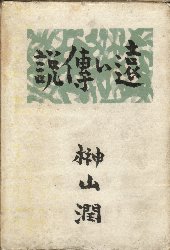 遠い傳説
榊山潤